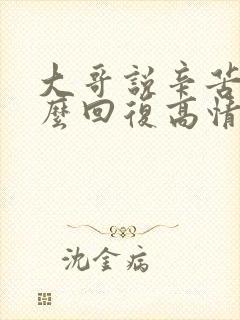 大哥說辛苦
麼回復高情
沈金病